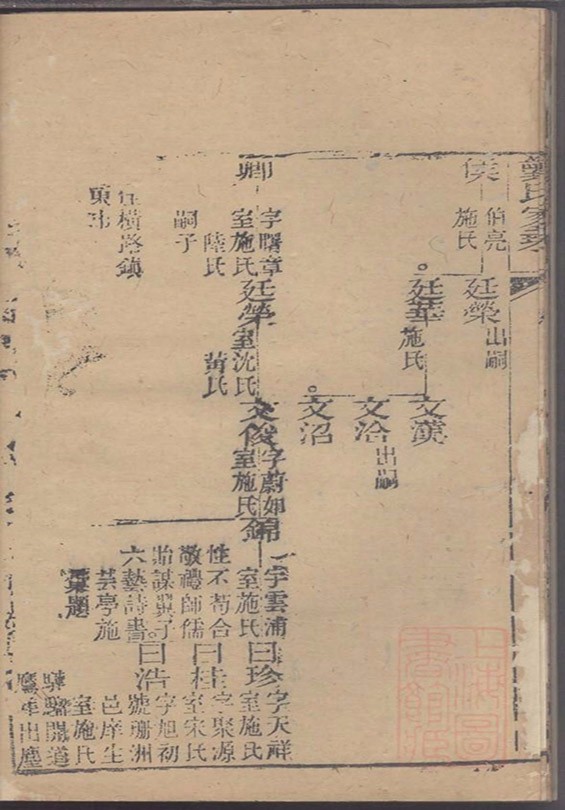 侯
伯亮
施氏
廷榮
出嗣
廷華
施氏
文漢
文洽
出嗣
文沼
卿
字曙章
室施氏
陸氏
嗣子
住橫路鎮
東市
廷榮
室沈氏
黃氏
文俊
字蔚如
室施氏
錦
字雲浦
室施氏
性不苟合
敬禮師儒
貽謀翼子
六藝詩書
芸亭施
彙題
曰珍
字天祥
室施氏
曰桂
字聚源
室宋氏
曰浩
字旭初
號珊洲
邑庠生
室施氏
開道
出塵